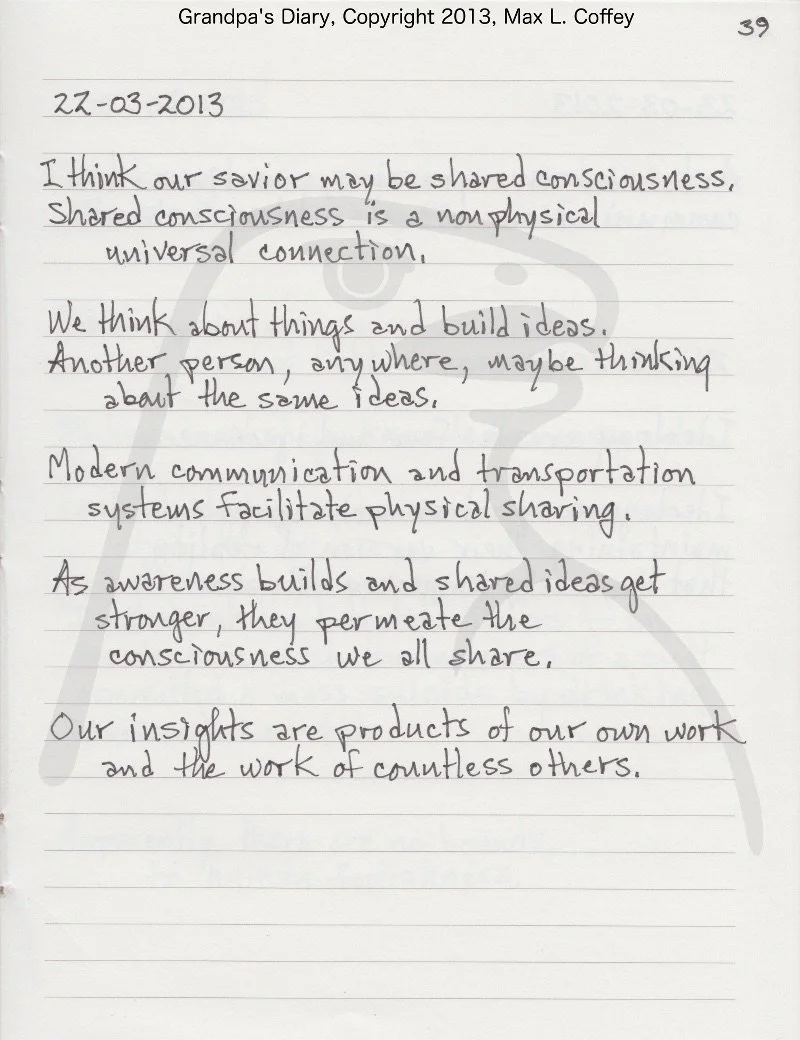 Grandpa's Diary, Copyright 2013, Max L. Coffey
39
22-03-2013
I think our savior may be shared consciousness.
Shared consciousness is a nonphysical
universal connection.
We think about things and build ideas.
Another person, anywhere, maybe thinking
about the same ideas.
Modern communication and transportation
systems facilitate physical sharing.
As awareness builds and shared ideas get
stronger, they permeate the
consciousness we all share.
Our insights are products of our own work
and the work of countless others.